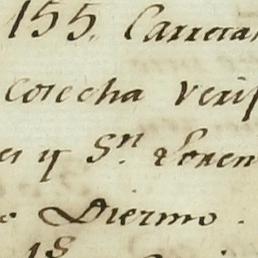 155. Carreta
cosecha veri
es y Sn. Loren
Diezmo.
18